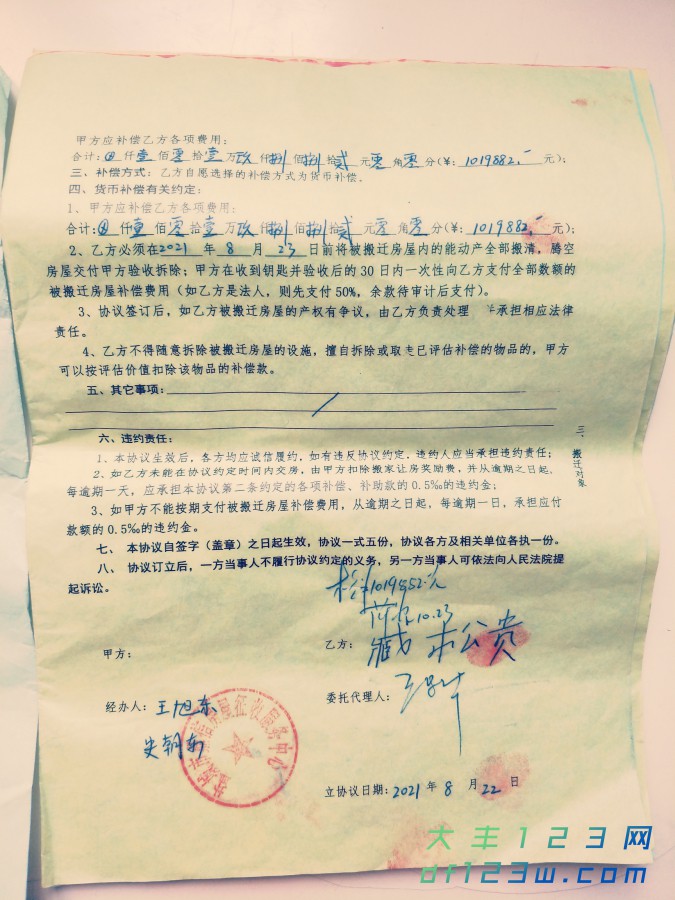 甲方应补偿乙方各项费用：
合计：仟壹佰零拾壹万玖仟捌佰捌拾贰元零角零分(¥：1019882.-元)；
三、补偿方式：乙方自愿选择的补偿方式为货币补偿。
四、货币补偿有关约定：
1、甲方应补偿乙方各项费用：
合计：仟壹佰零拾壹万玖仟捌佰捌拾贰元零角零分(¥：1019882.-元)；
2、乙方必须在2021年8月23日前将被搬迁房屋内的能动产全部搬清，腾空
房屋交付甲方验收拆除；甲方在收到钥匙并验收后的30日内一次性向乙方支付全部数额的
被搬迁房屋补偿费用（如乙方是法人，则先支付50%，余款待审计后支付）。
3、协议签订后，如乙方被搬迁房屋的产权有争议，由乙方负责处理 承担相应法律
责任。
4、乙方不得随意拆除被搬迁房屋的设施，擅自拆除或取走已评估补偿的物品的，甲方
可以按评估价值扣除该物品的补偿款。
五、其它事项：
六、违约责任：
1、本协议生效后，各方均应诚信履约，如有违反协议约定，违约人应当承担违约责任；
2、如乙方未能在协议约定时间内交房，由甲方扣除搬家让房奖励费，并从逾期之日起，
每逾期一天，应承担本协议第二条约定的各项补偿、补助款的0.5‰的违约金；
3、如甲方不能按期支付被搬迁房屋补偿费用，从逾期之日起，每逾期一日，承担应付
款额的0.5‰的违约金。
七、本协议自签字（盖章）之日起生效，协议一式五份，协议各方及相关单位各执一份。
八、协议订立后，一方当事人不履行协议约定的义务，另一方当事人可依法向人民法院提
起诉讼。
1019882元
10.23
甲方：
乙方：
经办人：王旭东
史朝东
委托代理人：
房屋征收服务中心
立协议日期：2021年8月22日
三、搬迁对象
大丰123网
df123w.com